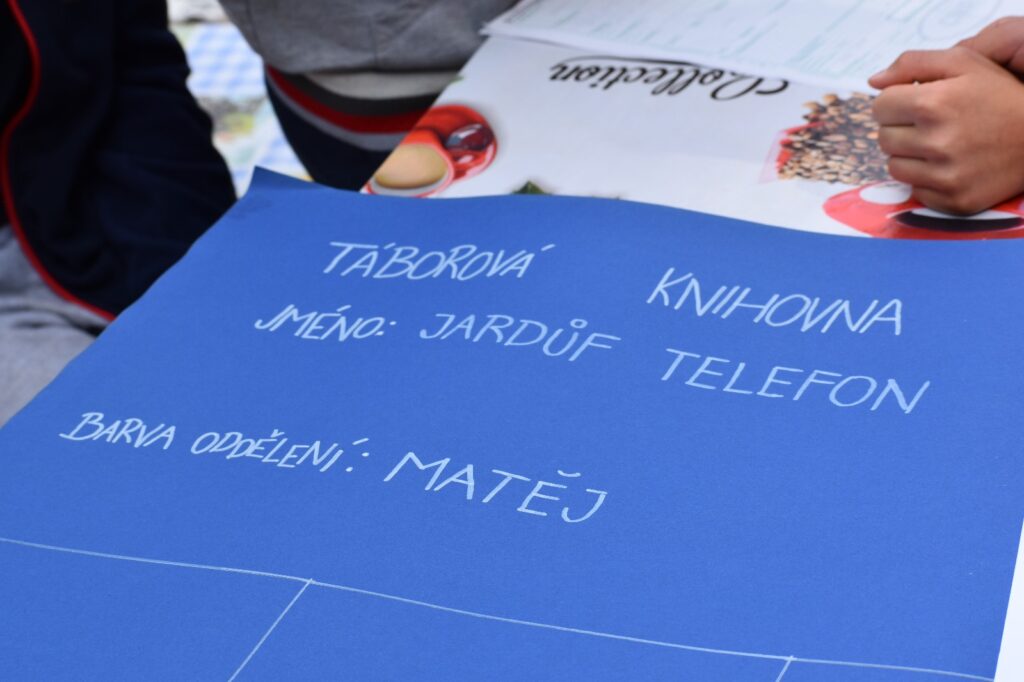 Collection
TÁBOROVÁ KNIHOVNA
JMÉNO: JARDŮF TELEFON
BARVA ODDĚLENÍ: MATĚJ